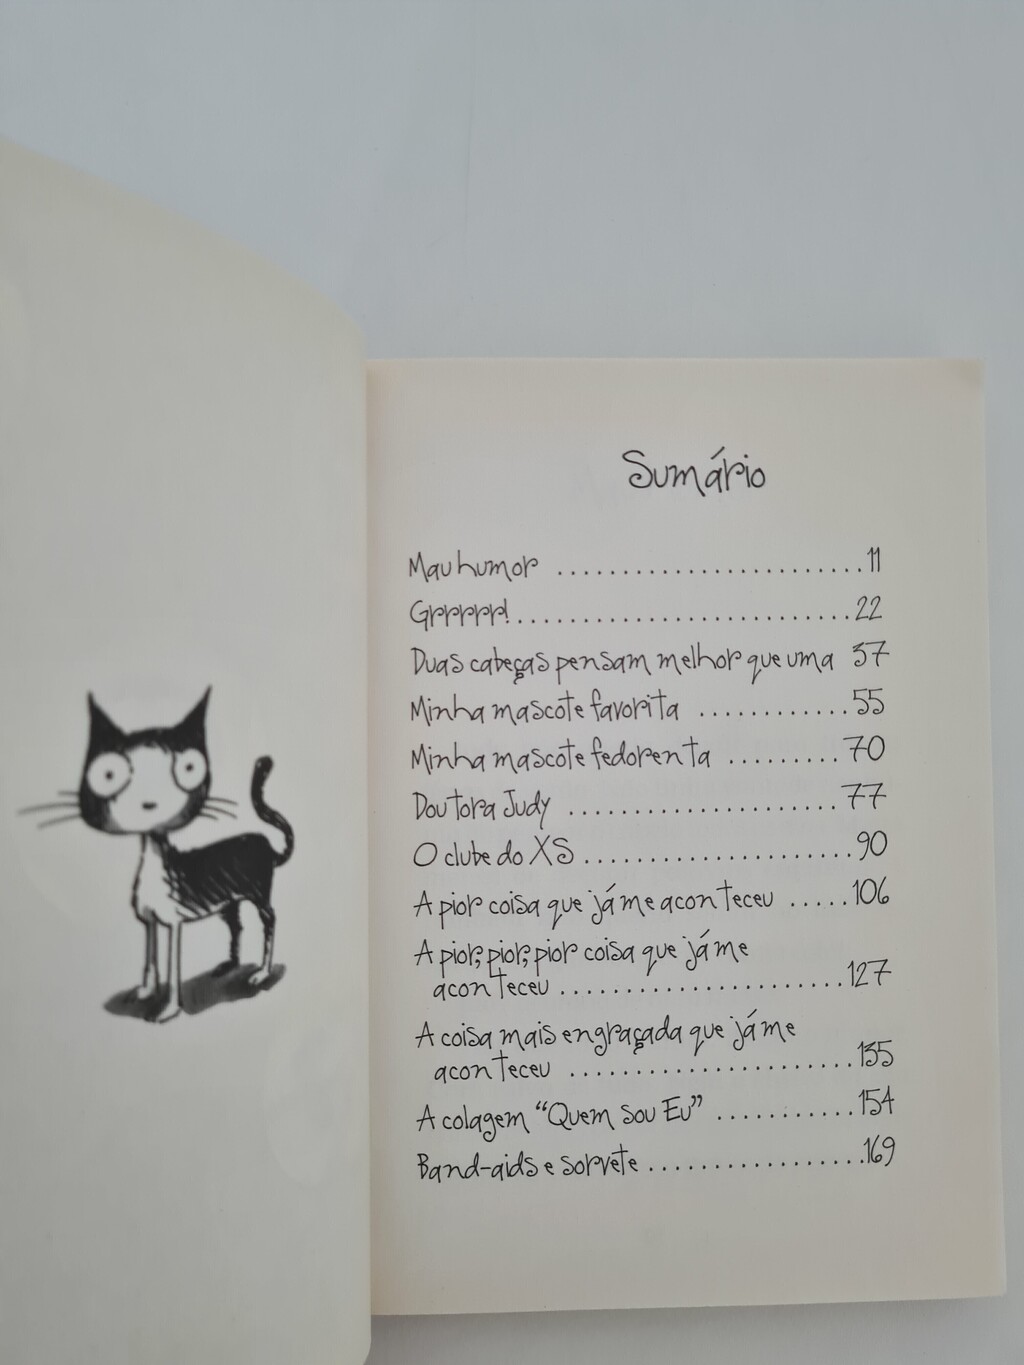 Sumário
Mau humor ........................ 11
Grrrrr! .......................... 22
Duas cabeças pensam melhor que uma 37
Minha mascote favorita ............ 55
Minha mascote fedorenta ......... 70
Doutora Judy ..................... 77
O clube do XS ..................... 90
A pior coisa que já me aconteceu ..... 106
A pior, pior, pior coisa que já me
aconteceu ...................... 127
A coisa mais engraçada que já me
aconteceu ...................... 135
A colagem “Quem sou Eu” ........... 154
Band-aids e sorvete ................. 169